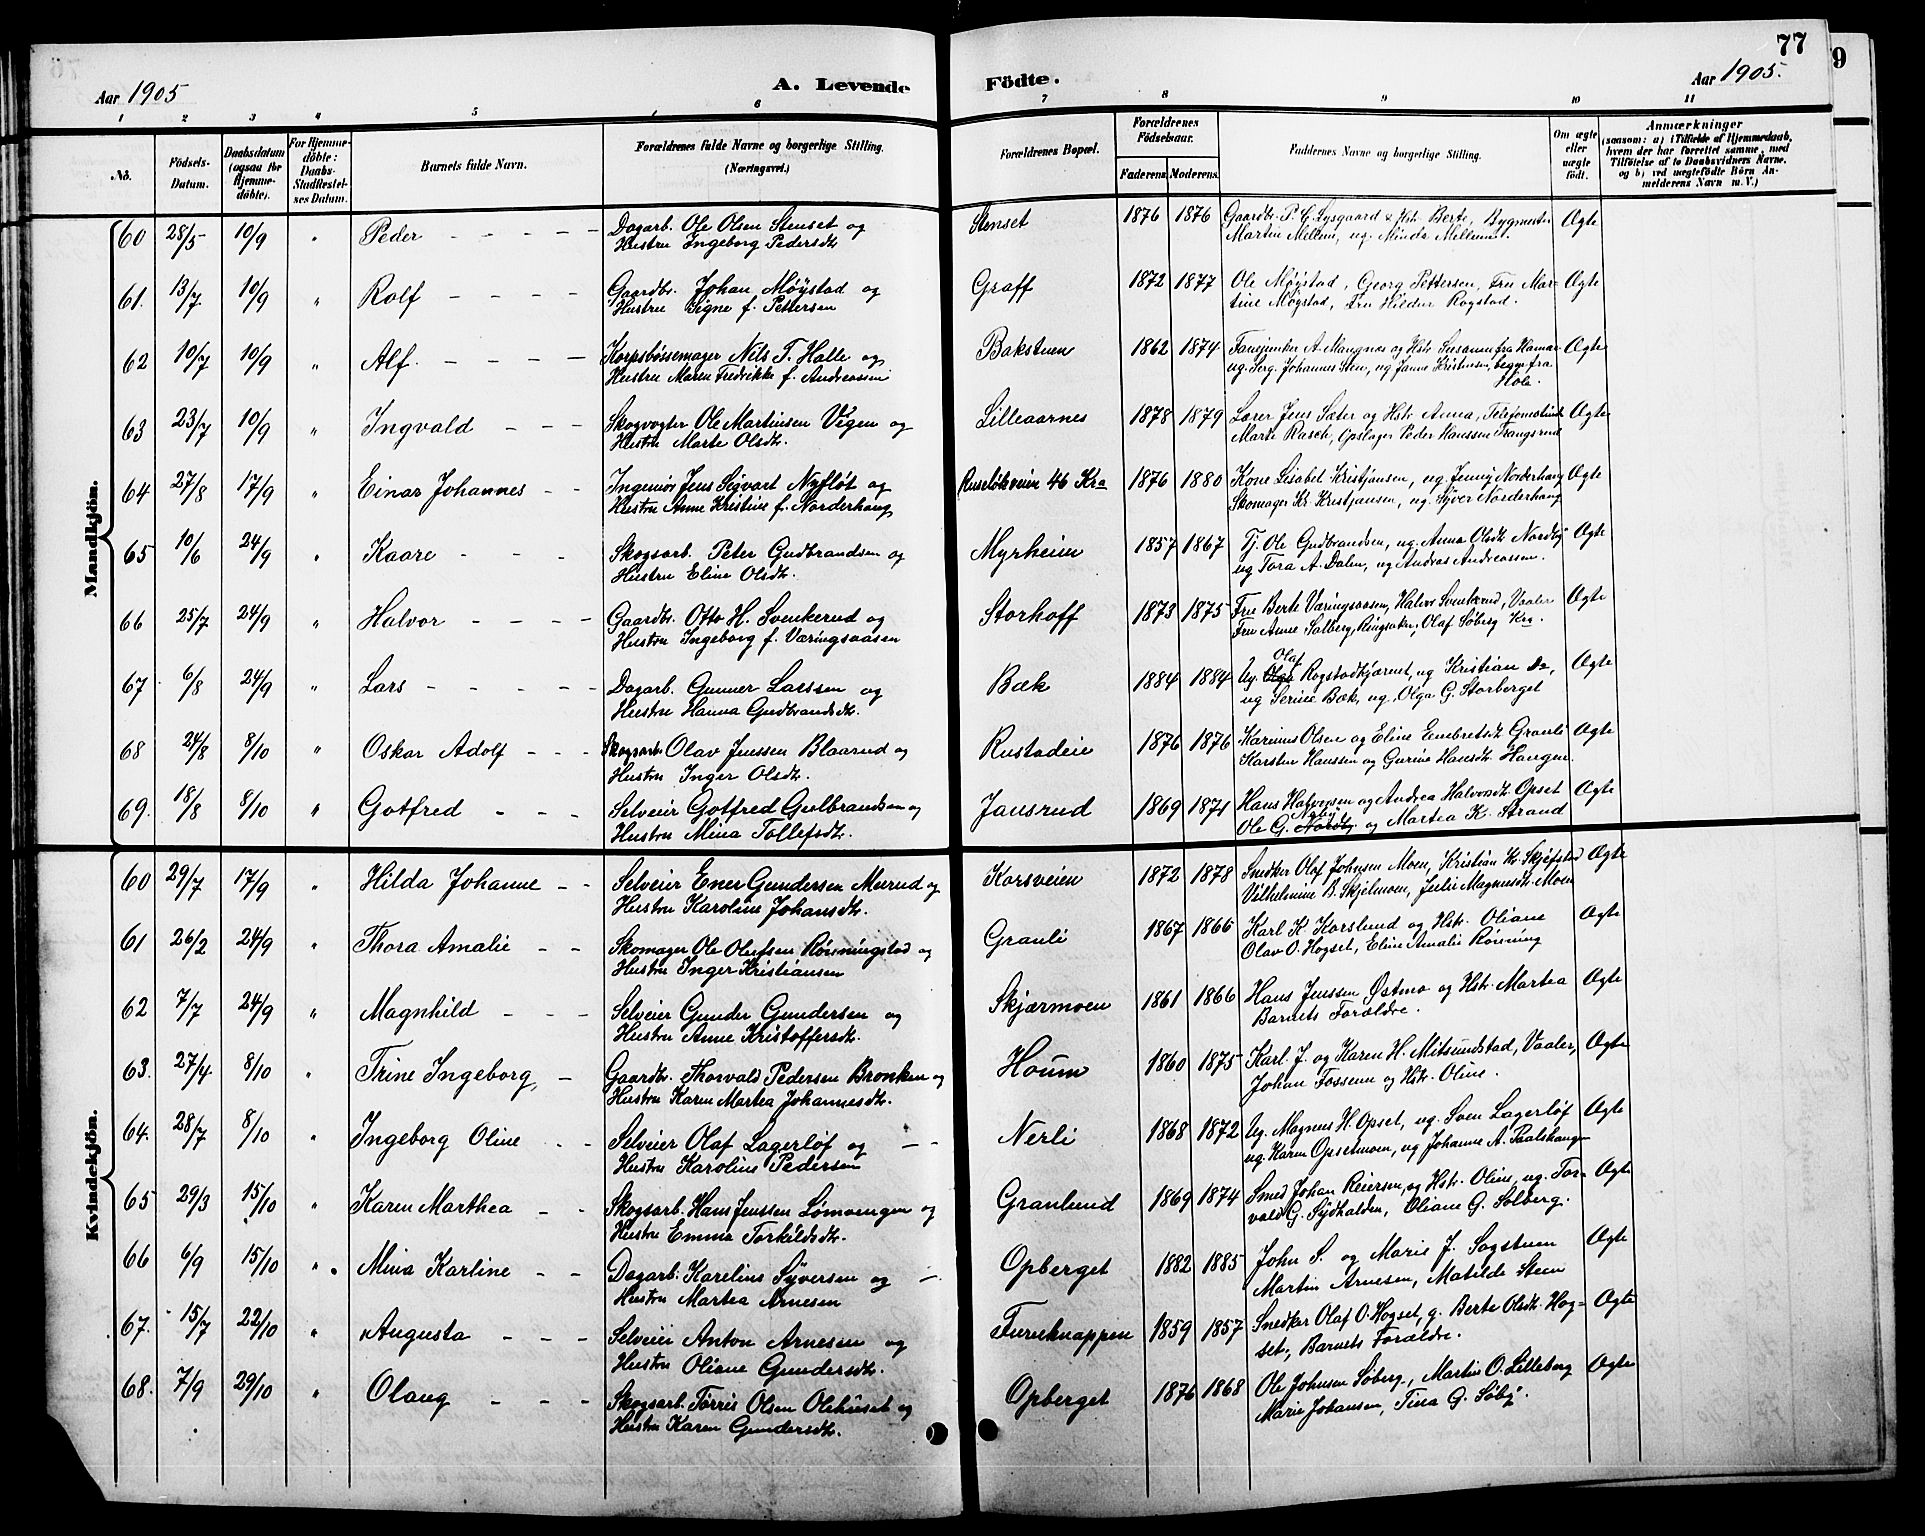 77
9
Aar 1905
A. Levende
Födte.
Aar 1905.
1 2 3 4 5 6 7 8 9 10 11
No.
Födsels-Datum.
Daabsdatum (ogsaa for Hjemmedöbte).
For Hjemmedöbte: Daabs-Stadfestelses Datum.
Barnets fulde Navn.
Forældrenes fulde Navne og borgerlige Stilling.
(Næringsvei.)
Forældrenes Bopæl.
Forældrenes Födselsaar.
Faderens. Moderens.
Faddernes Navne og borgerlige Stilling.
Om ægte eller uægte födt.
Anmærkninger
(saasom: a) i Tilfælde af Hjemmedaab,
hvem der har forrettet samme, med
Tilföielse af to Daabsvidners Navne,
og b) ved uægtefödte Börn An-
melderens Navn m. V.)
Mandkjön.
60 28/5 10/9 " Peder Dagarb. Ole Olsen Stenset og Stenset 1876 1876 Gaardbr. P. G. Lysgaard & Hstr. Berte, Bygmester Ægte
Hustru Ingeborg Pedersdtr. Martin Mellum, ug. Minda Mellum.
61. 13/7 10/9 " Rolf Gaardbr. Johan Möystad og Graff 1872 1877 Ole Møystad, Georg Pettersen, Fru Mar= Ægte
Hustru Signe f. Pettersen tine Møystad, Fru Hilder Rogstad.
62 10/7 10/9 " Alf. Korpsbössemager Nils T. Halle og Bakstuen 1862 1874 Fanejunker A. Mangnæs og Hstr. Susanne fra Hamar Ægte
Hustru Maren Fredrikke f. Andreassen ug. Serg. Johannes Sten, ug Janna Kristensen, begge fra
Hole.
63 23/7 10/9 " Ingvald Skogvogter Ole Martinsen Vigen og Lilleaarnes 1878 1879 Lærer Jens Sæter og Hstr. Anna, Telefonistinde Ægte
Hustru Marte Olsdtr. Marte Rasch, Opslager Peder Hanssen Trangsrud
64 27/8 17/9 " Einar Johannes Ingeniør Jens Sigvart Nyfløt og Ruseløkveien 46 Kra 1876 1880 Kone Lisabet Kristjansen, ug. Jenny Norderhaug Ægte
Hustru Anne Kristine f. Norderhaug, Skomager Kr. Kristjansen, ug. Syver Norderhaug
65 10/6 24/9 " Kaare Skogsarb. Peter Gudbrandsen og Myrheim 1857 1867 Tj. Ole Gudbrandsen, ug. Anna Olsdtr. Nordby Ægte
Hustru Eline Olsdtr. ug Tora A. Dalen, ug Andras Andreassen.
66 25/7 24/9 " Halvor Gaardbr. Otto H. Svenkerud og Storhoff 1873 1875 Fru Berte Væringsaasen, Halvor Svenkerud, Vaaler Ægte
Hustru Ingeborg f. Væringsaasen Fru Anne Salberg, Ringsaker, Olaf Søberg Kra.
67 6/8 24/9 " Lars Dagarb. Gunner Larssen og Bæk 1884 1884 Ug. Olga Olaf Rogstadkjærnet, ug Kristian Do, Ægte
Hustru Hanna Gudbrandsdtr. ug Serine Bæk, ug. Olga G. Storberget
68 24/8 8/10 " Oskar Adolf Skogsarb. Olav Jenssen Blaarud og Rustadeie 1876 1876 Karinus Olsen og Eline Embretsdtr Granli Ægte
Hustru Inger Olsdtr. Karsten Hanssen og Gurine Hansdtr. Haugen.
69. 18/8 8/10 " Gotfred Selveier Gotfred Gulbrandsen og Jansrud 1869 1871 Hans Halvorsen og Andrea Halvorsdtr. Opset Ægte
Hustru Mina Tollefsdtr. Ole G. Nordby og Martea K. Strand
Kvindekjön.
60 29/7 17/9 " Hilda Johanne Selveier Ener Gundersen Murud og Korsveien 1872 1878 Snedker Olaf Johnsen Moen, Kristian Kr. Skjefstad Ægte
Hustru Karoline Johansdtr. Vilhelmine B. Skjelmoen, Julie Magnusdtr. Moen
61 26/2 24/9 " Thora Amalie Skomager Ole Olufsen Rønningstad og Granli 1867 1866 Karl K. Korslund og Hstr. Oliane Ægte
Hustru Inger Kristiansen Olav O. Hogset, Eline Amalie Rønning
62 7/7 24/9 " Magnhild Selveier Gunder Gundersen og Skjærmoen 1861 1866 Hans Jenssen Østmo og Hstr. Martea Ægte
Hustru Anne Kristoffersdtr. Barnets Forældre.
63. 27/4 8/10 " Trine Ingeborg, Gaardbr. Thorvald Pedersen Bronken og Houm 1860 1875 Karl J. og Karen H. Mitsundstad, Vaaler, Ægte
Hustru Karen Martea Johannesdtr. Johan Fossum og Hstr. Oline.
64. 28/7 8/10 " Ingeborg Oline Selveier Olaf Lagerløf og Nerli 1868 1872 Ug. Magnus H. Opset, ug. Sven Lagerløf Ægte
Hustru Karoline Pedersen ug. Karen Opsetmoen, ug Johanne A. Paalshaugen
65 29/3 15/10 " Karen Marthea Skogsarb. Hans Jenssen Lømoengen og Granlund 1869 1874 Smed Johan Reiersen, og Hstr. Oline, ug. Tor= Ægte
Hustru Emma Torkildsdtr. vald G. Sydhalden, Oliane G. Solberg.
66 6/9 15/10 " Mina Karline Dagarb. Karelius Syversen og Opberget 1882 1885 John S. og Marie J. Sagstuen Ægte
Hustru Martea Arnesen Martin Arnesen, Matilde Steen
67. 15/7 22/10 " Augusta Selveier Anton Arnesen og Furuknappen 1859 1857 Snedker Olaf O. Hogset, g. Berte Olsdtr. Hog= Ægte
Hustru Oliane Gundersdtr. set, Barnets Forældre.
68. 7/9 29/10 " Olaug Skogsarb. Tørris Olsen Olehuset og Opberget 1876 1868 Ole Johnsen Søberg, Martin O. Lilleberg Ægte
Hustru Karen Gundersdtr. Marie Johansen, Tina G. Søby.